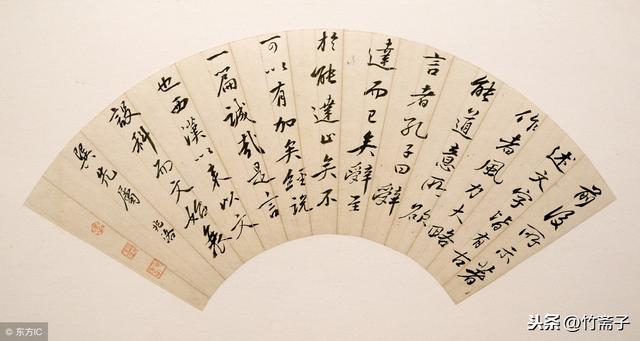 前後所示著
述文字皆有古
作者風力大略
能道意所欲
言者孔子曰辭
達而已矣辭至
於能達止矣不
可以有加矣經說
一篇誠哉是言
也西漢以來以文
設科而文始衰
巽先屬 兆洛
© 东方IC
头条 @竹斋子